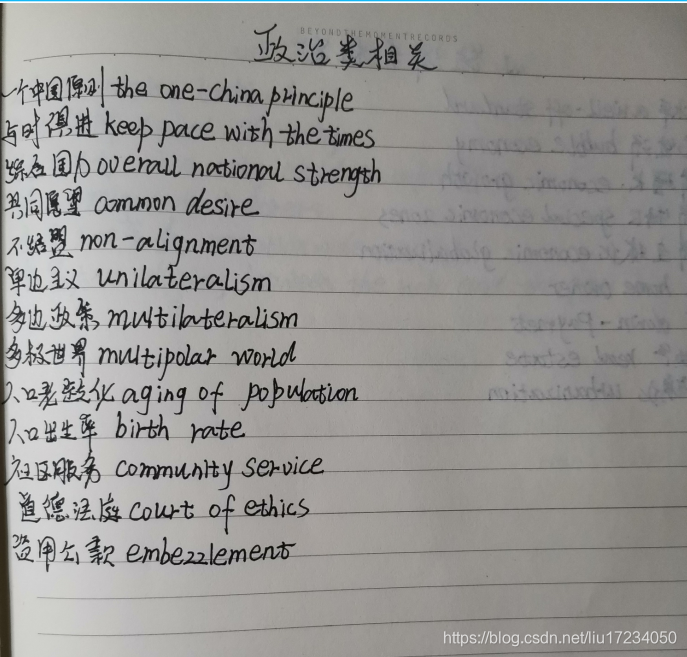 BEYONDTHEMOMENTRECORDS
政治类相关
一个中国原则 the one-china principle
与时俱进 keep pace with the times
综合国力 overall national strength
共同愿望 common desire
不结盟 non-alignment
单边主义 unilateralism
多边政策 multilateralism
多极世界 multipolar world
人口老龄化 aging of population
人口出生率 birth rate
社区服务 community service
道德法庭 court of ethics
盗用公款 embezzlement
https://blog.csdn.net/liu17234050